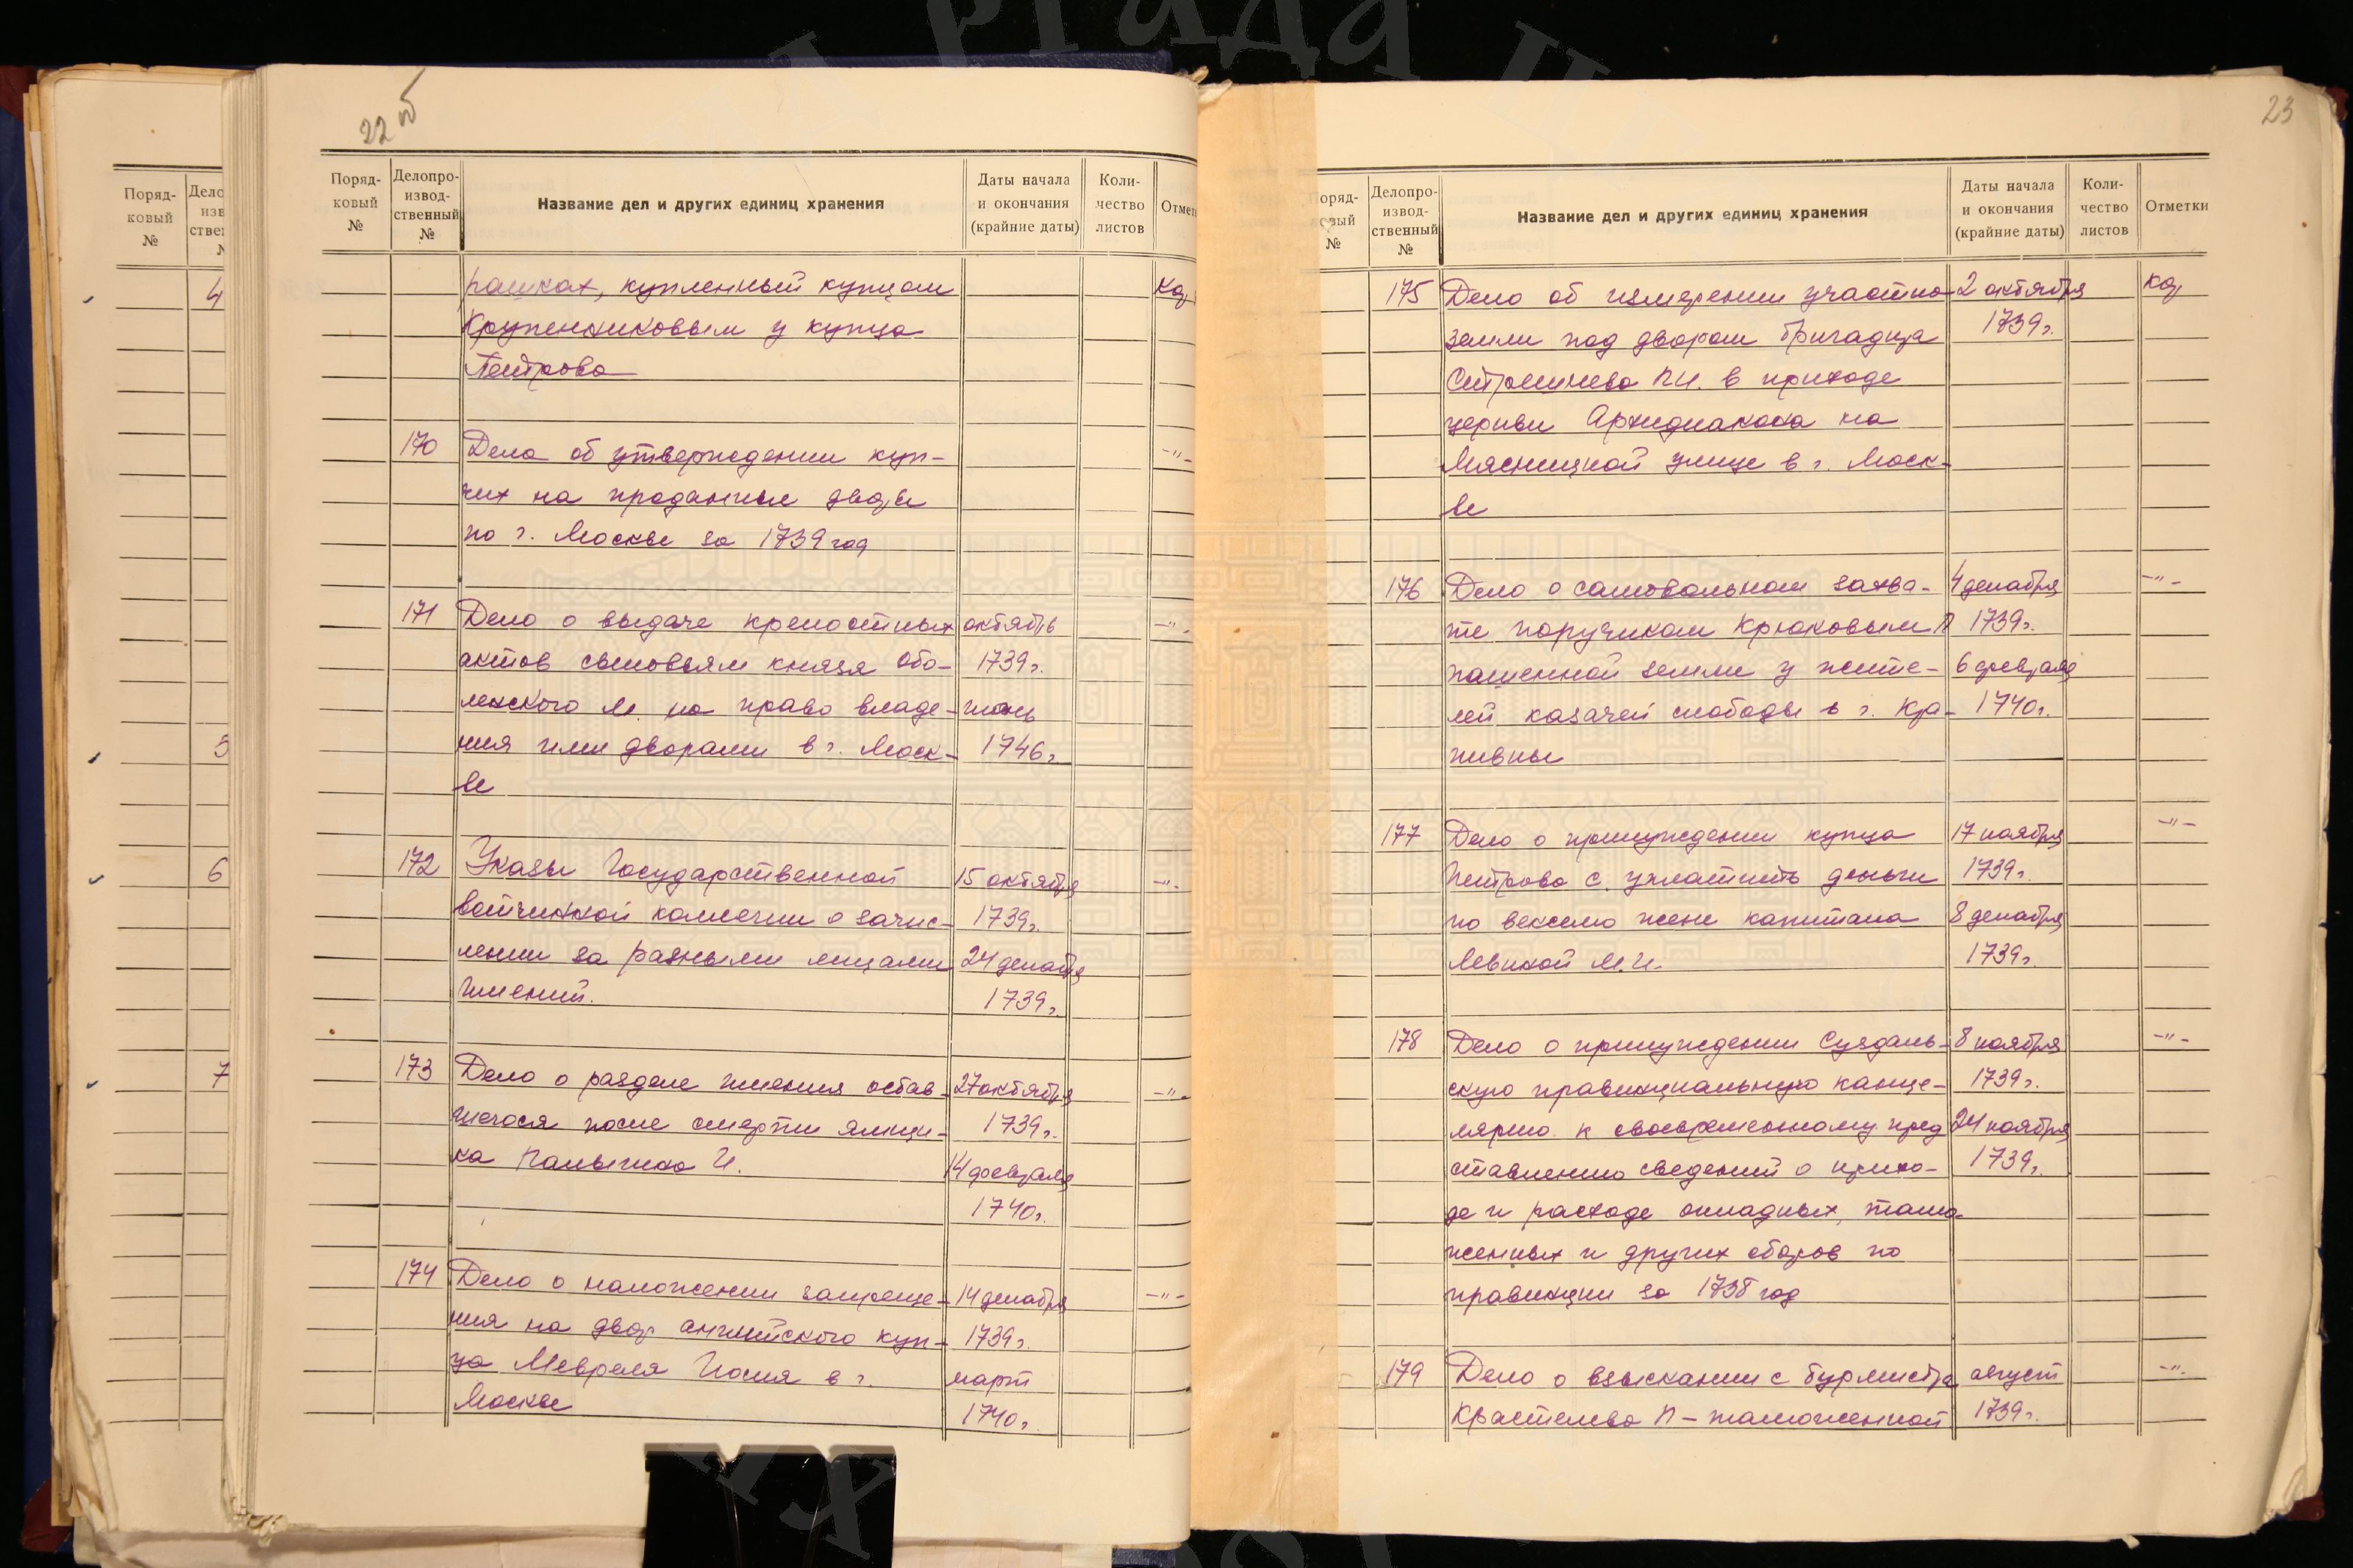 22 об
Поряд-
ковый
№
Делопро-
извод-
ственный
№
Название дел и других единиц хранения
Даты начала
и окончания
(крайние даты)
Коли-
чество
листов
Отметк
рашках, купленный купцом
Крупенниковым у купца
Петрова
170 Дела об утверждении куп- -"-
чих на проданные дворы
по г. Москве за 1739 год
171 Дело о выдаче крепостных октябрь -"-
актов сыновьям князя Обо- 1739 г.
ленского М. на право владе- июнь
ния ими дворами в г. Моск- 1746 г.
ве
172 Указы Государственной 15 октября -"-
вотчинной коллегии о зачис- 1739 г.
лении за разными лицами 24 декабря
имений. 1739 г.
173 Дело о разделе имения остав- 27 октября -"-
шегося после смерти ямщи- 1739 г.
ка И. 14 февраля
1740 г.
174 Дело о наложении запреще- 14 декабря -"-
ния на двор английского куп- 1739 г.
ца Мевреля в г. март
Москве 1740 г.
23
оряд-
ковый
№
Делопро-
извод-
ственный
№
Название дел и других единиц хранения
Даты начала
и окончания
(крайние даты)
Коли-
чество
листов
Отметки
175 Дело об измерении участка 2 октября
земли под двором бригадира 1739 г.
Стрешнева П.И. в приходе
церкви Архидиакона на
Мясницкой улице в г. Моск-
ве
176 Дело о самовольном захва- 4 декабря -"-
те поручиком Крюковым П 1739 г.
пашенной земли у жите- 6 февраля
лей казачей слободы в г. Кра- 1740 г.
пивны
177 Дело о принуждении купца 17 ноября -"-
Петрова С. уплатить деньги 1739 г.
по векселю жене капитана 8 декабря
Левиной М.И. 1739 г.
178 Дело о принуждении Суздаль- 8 ноября -"-
скую правинциальную канце- 1739 г.
лярию к своевременному пред 24 ноября
ставлению сведений о прихо- 1739 г.
де и расходе окладных, тамо-
женных и других сборов по
правинции за 1738 год
179 Дело о взыскании с бурмистра август -"-
Крастелева П – таможенной 1739 г.
Поряд-
ковый
№
4
5
6
7